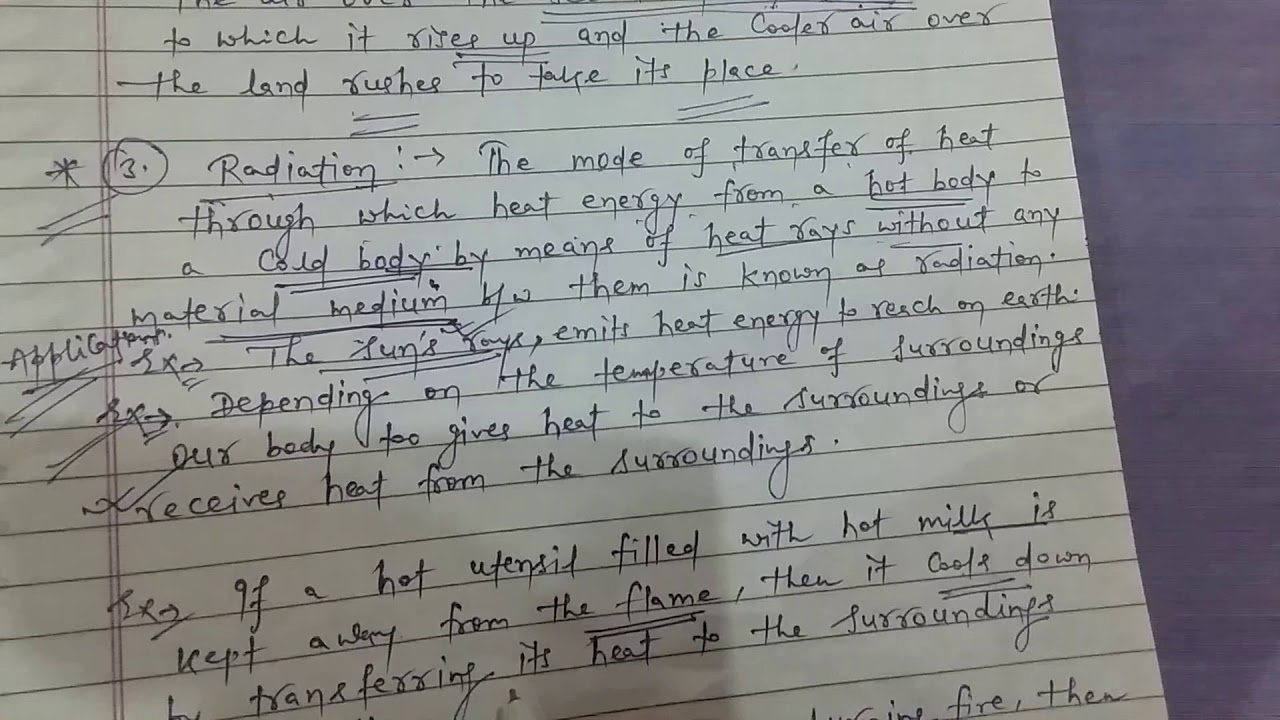 The air over the
to which it rises up and the Cooler air over
the land rushes to take its place.
* 3. Radiation :→ The mode of transfer of heat
through which heat energy from a hot body to
a Cold body by means of heat rays without any
material medium b/w them is known as radiation.
Application.
Ex→ The Sun's rays, emits heat energy to reach on earth.
Ex→ Depending on the temperature of surroundings
our body too gives heat to the surroundings or
receives heat from the surroundings.
Ex→ If a hot utensil filled with hot milk is
kept away from the flame, then it cools down
by transferring its heat to the surroundings
fire, then